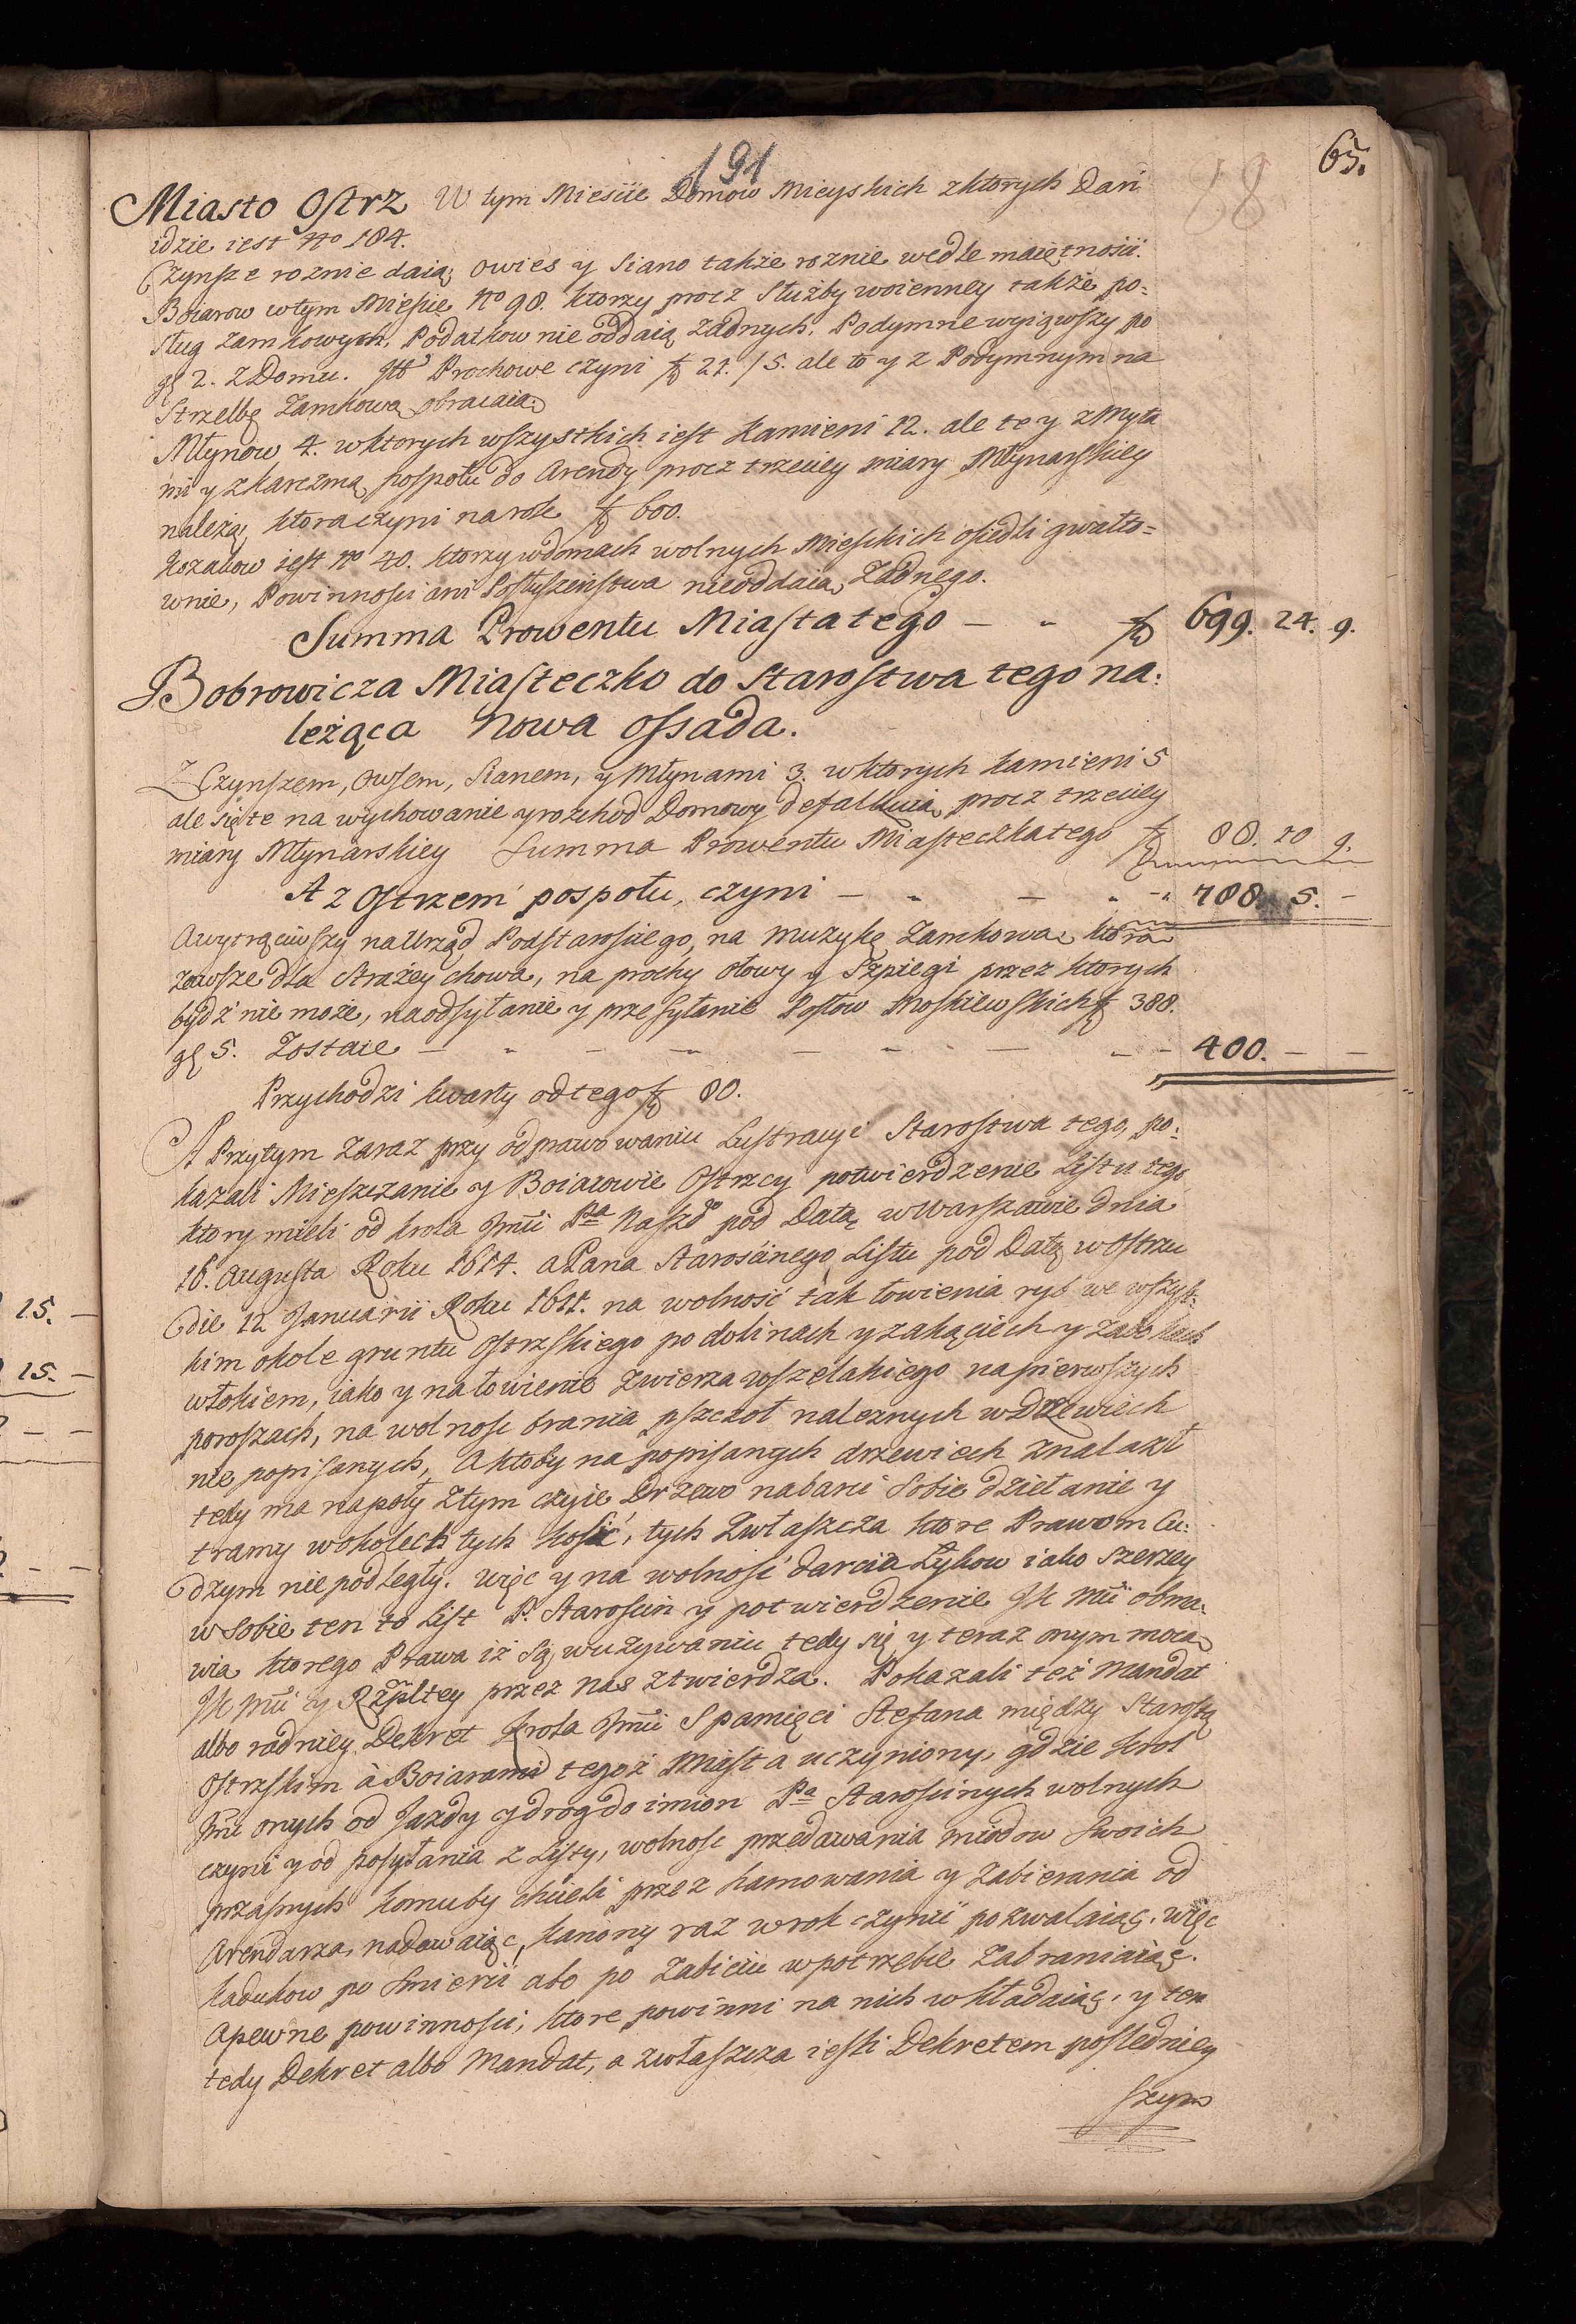 191
65.
88
Miasto Ostrz W tym Mieście Domow Mieyskich z ktorych Dań
idzie iest No 184.
Czynsze roznie daią owies y Siano także roznie wedle maiętności.
Boiarow wtym Mieście No 98. ktorzy procz Służby woienney także po=
sług zamkowych. Podatkow nie oddaią żadnych. Podymne wyiąwszy po
gł 2. z Domu. Prochowe czyni f 21. 15. ale to y z Podymnym na
Strzelbę Zamkową obracaią.
Młynow 4. w ktorych wszystkich iest kamieni 12. ale te y z Myta
mi y z karczmą pospołu do Arendy procz trzeciey miary Młynarskiey
należą, ktora czyni na rok f 600.
Kozakow iest No 40. ktorzy w domach wolnych Mieskich osiedli gwałto=
wnie, Powinności ani Posłuszeństwa nieoddaią Żadnego.
Summa Prowentu Miasta tego — - f 699. 24. 9.
Bobrowicza Miasteczko do Starostwa tego na:
leżąca Nowa Ossada.
Z Czynszem, Owsem, Sianem, y Młynami 3. w ktorych kamieni 5
ale się te na wychowanie y rozchod Domowy defalkuią procz trzeciey
miary Młynarskiey Summa Prowentu Miasteczka tego f 88. 10 9.
A z Ostrzem pospołu, czyni — - — - - 788. 5. -
A wytrąciwszy na Urząd Podstarosciego, na muzykę Zamkową ktora
zawsze dla Strażey chowa, na prochy ołowy y Szpiegi przez ktorych
bydź nie może, na odsyłanie y przesyłanie Posłow Moskiewskich f 388.
gł 5. Zostaie — - — - — - — - - 400. — —
Przychodzi kwarty od tego f 80.
A Przytym zaraz przy odprawowaniu Lustracyi Starostwa tego, po:
kazali Mieszczanie y Boiarowie Ostrzcy potwierdzenie Listu tego
ktory mieli od krola Jmci Pa Naszo pod Datą w Warszawie dnia
16. Augusta Roku 1614. a Pana Starościnego Listu pod Datą w Ostrzu
die 12 Januarii Roku 1611. na wolność tak łowienia ryb we wszyst:
kim okole gruntu Ostrskiego po dolinach y zakąciech y zatokach
włokiem, iako y na łowienie zwierza wszelakiego na pierwszych
poroszach, na wolnosc brania pszczoł należnych w drzewiech
nie popisanych, A ktoby na popisanych drzewiech znalazł
tedy ma na poły z tym czyie Drzewo na barci Sobie działanie y
tramy w okolech tych kosić, tych Zwłaszcza ktore Prawom Cu:
dzym nie podległy. więc y na wolność darcia Łykow iako szerzey
w sobie ten to List P. Starościn y potwierdzenie JK Mci obma:
wia ktorego Prawa iż są w używaniu tedy się y teraz onym mocą
JK Mci y Rzpltey przez nas ztwierdza. Pokazali też Mandat
albo radniey Dekret krola Jmci S pamięci Stefana między Starostą
Ostrskim a Boiarami tegoż Miasta uczyniony, gdzie krol
Jmc onych od Jazdy y drog do imion Pa Starościnych wolnych
czyni y od posyłania z Listy, wolność przedawania miodow Swoich
przasnych komuby chcieli przez hamowania y zabierania od
Arendarza nadawaiąc, kanony raz w rok czynić pozwalaiąc. więc
kadukow po Smierci abo po zabiciu w potrzebie zabraniaiąc.
a pewne powinności, ktore powinni na nich wkładaiąc. y ten
tedy Dekret albo Mandat, a zwłaszcza iesli Dekretem posledniey
szym
15. —
15. —